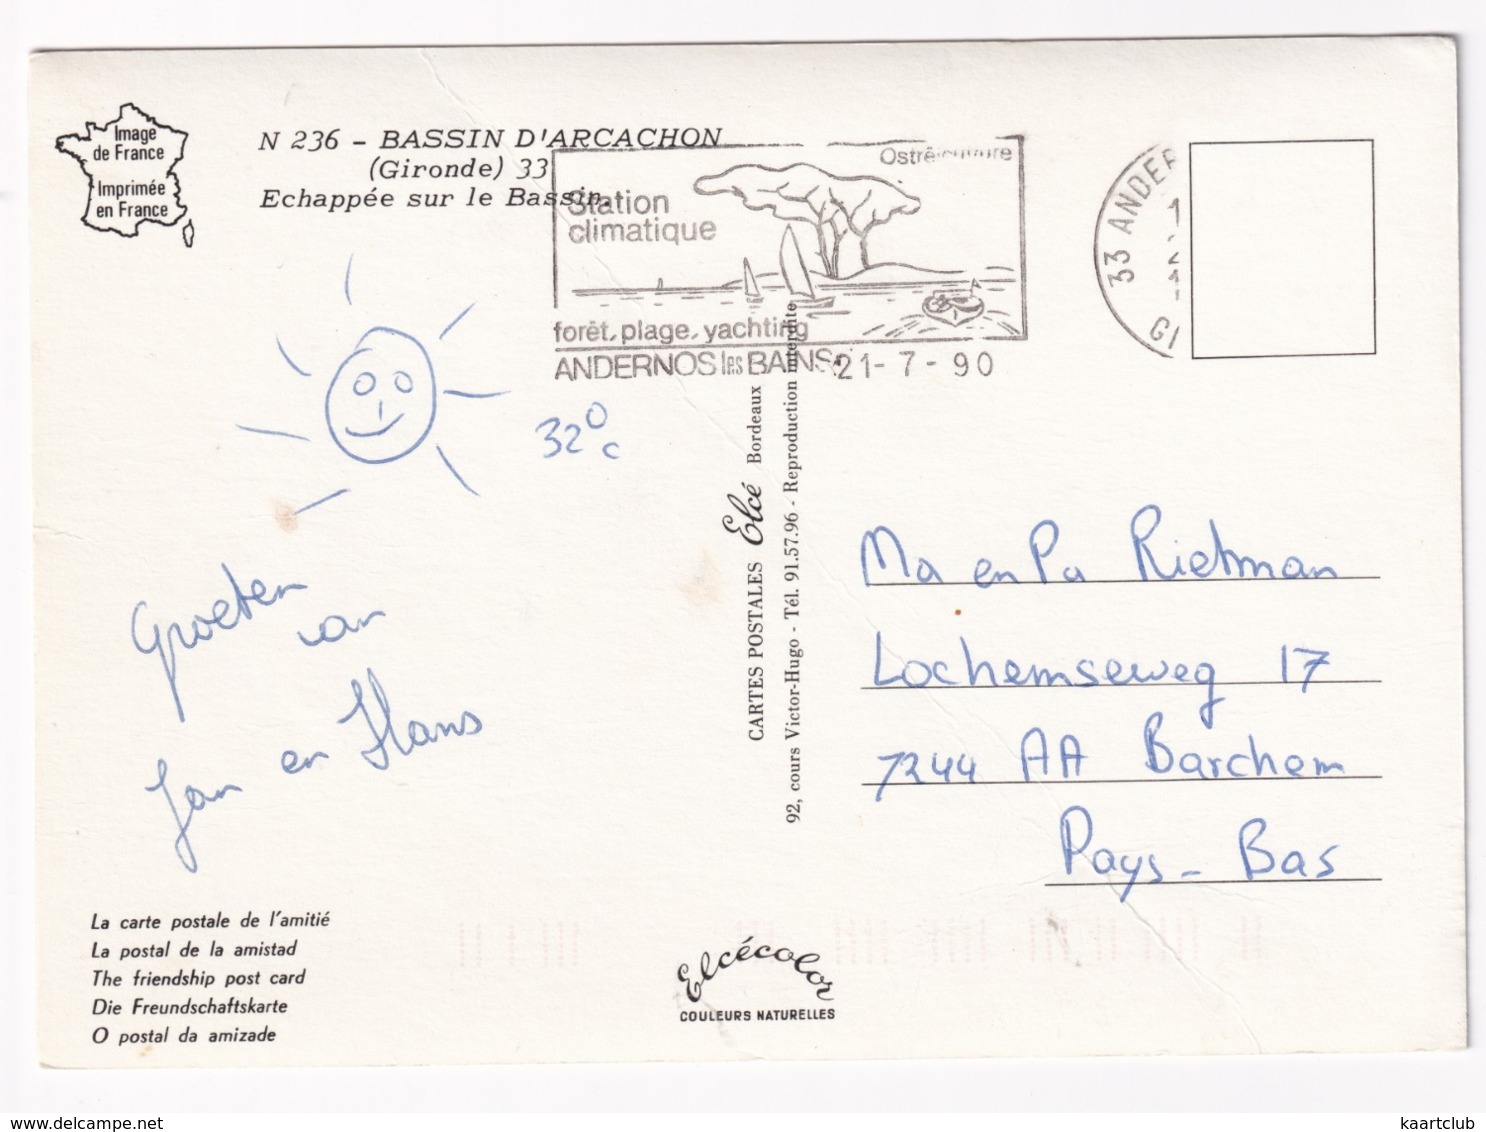 Image
de France
Imprimée
en France
N 236 - BASSIN D'ARCACHON
(Gironde) 33
Echappée sur le Bassin.
Station
climatique
forêt, plage, yachting
ANDERNOS les BAINS
21-7-90
33 ANDER
GI
32°c
Groeten
van
Jan en Hans
CARTES POSTALES Elcé Bordeaux
92, cours Victor-Hugo - Tél. 91.57.96 - Reproduction interdite
Ma en Pa Rietman
Lochemseweg 17
7244 AA Barchem
Pays-Bas
La carte postale de l'amitié
La postal de la amistad
The friendship post card
Die Freundschaftskarte
O postal da amizade
Elcécolor
COULEURS NATURELLES
delcampe.net
kaartclub